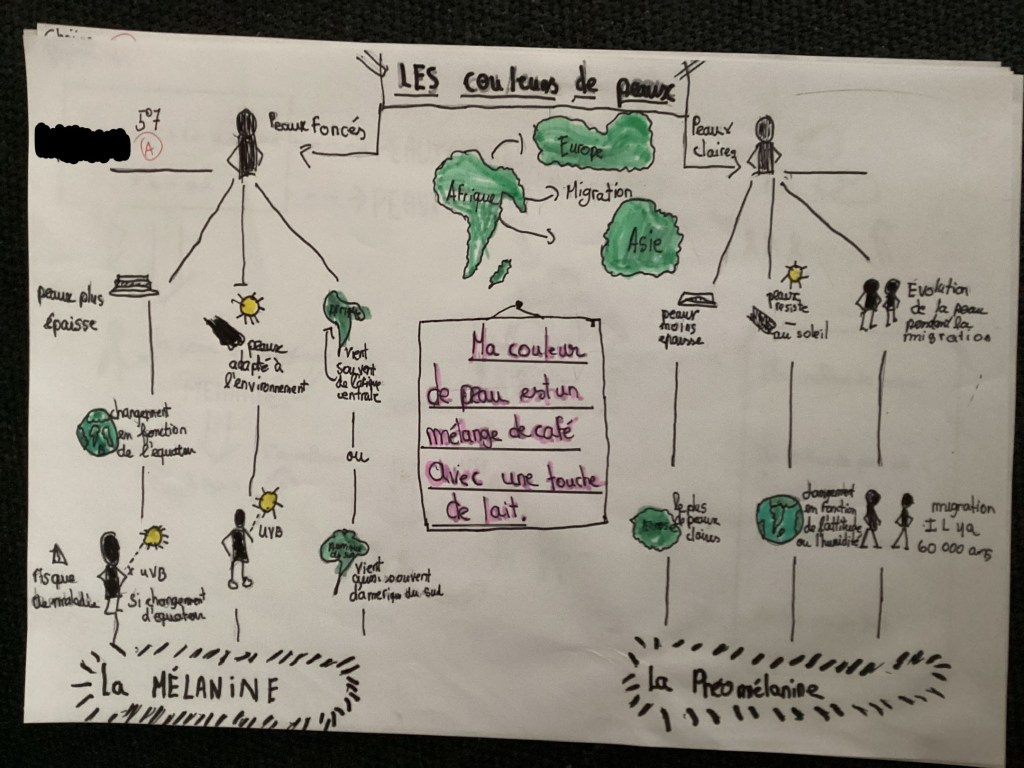 LES couleurs de peaux
5°7
A
Peaux foncés
Peaux
claires
Europe
Afrique
Migration
Asie
peaux plus
épaisse
peaux
adapté à
l'environnement
Afrique
vient
souvent
de l'afrique
centrale
changement
en fonction
de l'equateur
ou
risque
de maladie
UVB
Si changement
d'equateur
UVB
vient
aussi souvent
d'amerique du sud
La MÉLANiNE
Ma couleur
de peau est un
mélange de café
avec une touche
de lait.
peaux
moins
epaisse
peaux
resiste
au soleil
Évolution
de la peau
pendant la
migration
le plus
de peaux
claires
changement
en fonction
de l'altitude
ou l'humidité
migration
IL ya
60 000 ans
La Phéomélanine